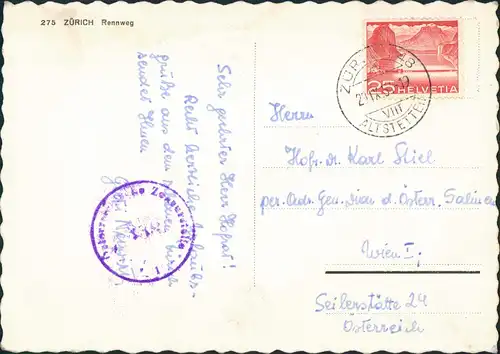 275 ZÜRICH Rennweg
Sehr geehrter Herr Hofrat!
Recht herzliche Urlaubs-
grüße aus dem
sendet Ihnen
Österreichische Zensurstelle
25 HELVETIA
ZÜRICH 48
VIII
ALTSTETTEN
Herrn
Hofr. Dr. Karl Stiel
per. Adr. Gen. Dion d. Österr. Salinen
Wien I.
Seilerstätte 24
Österreich